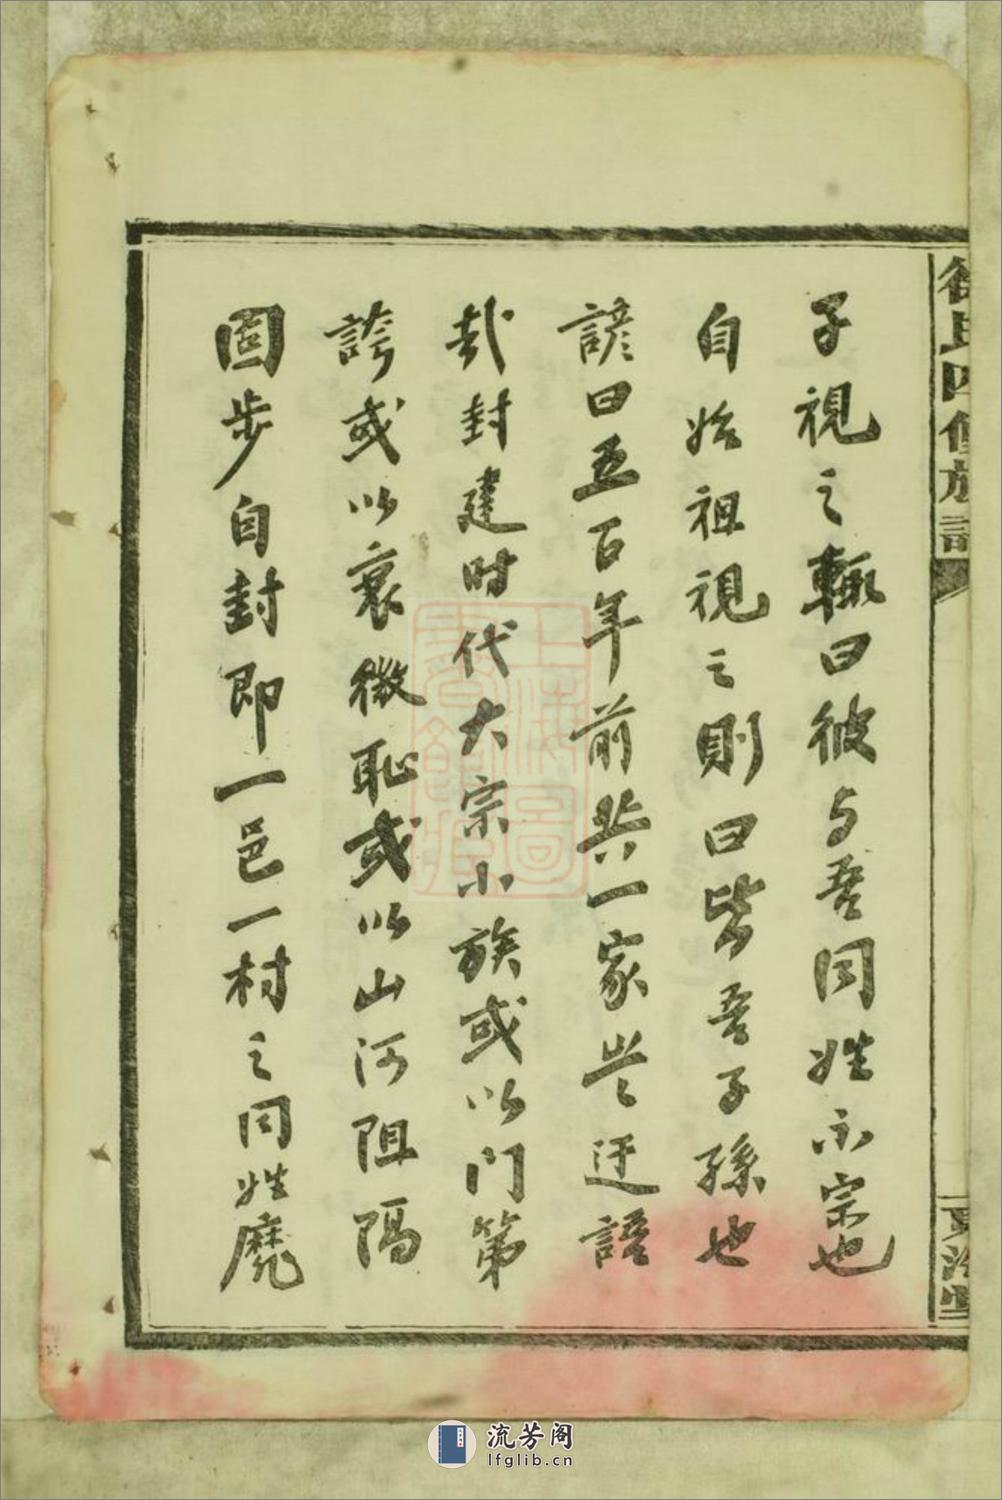 子視之輒曰彼与吾同姓不宗也
自始祖視之則曰皆吾子孫也
諺曰五百年前共一家豈迂語
哉封建时代大宗小族或以门第
誇或以衰微恥或以山河阻隔
固步自封即一邑一村之同姓魔
徐氏四修族譜
上海圖書館藏
流芳阁
lfglib.cn